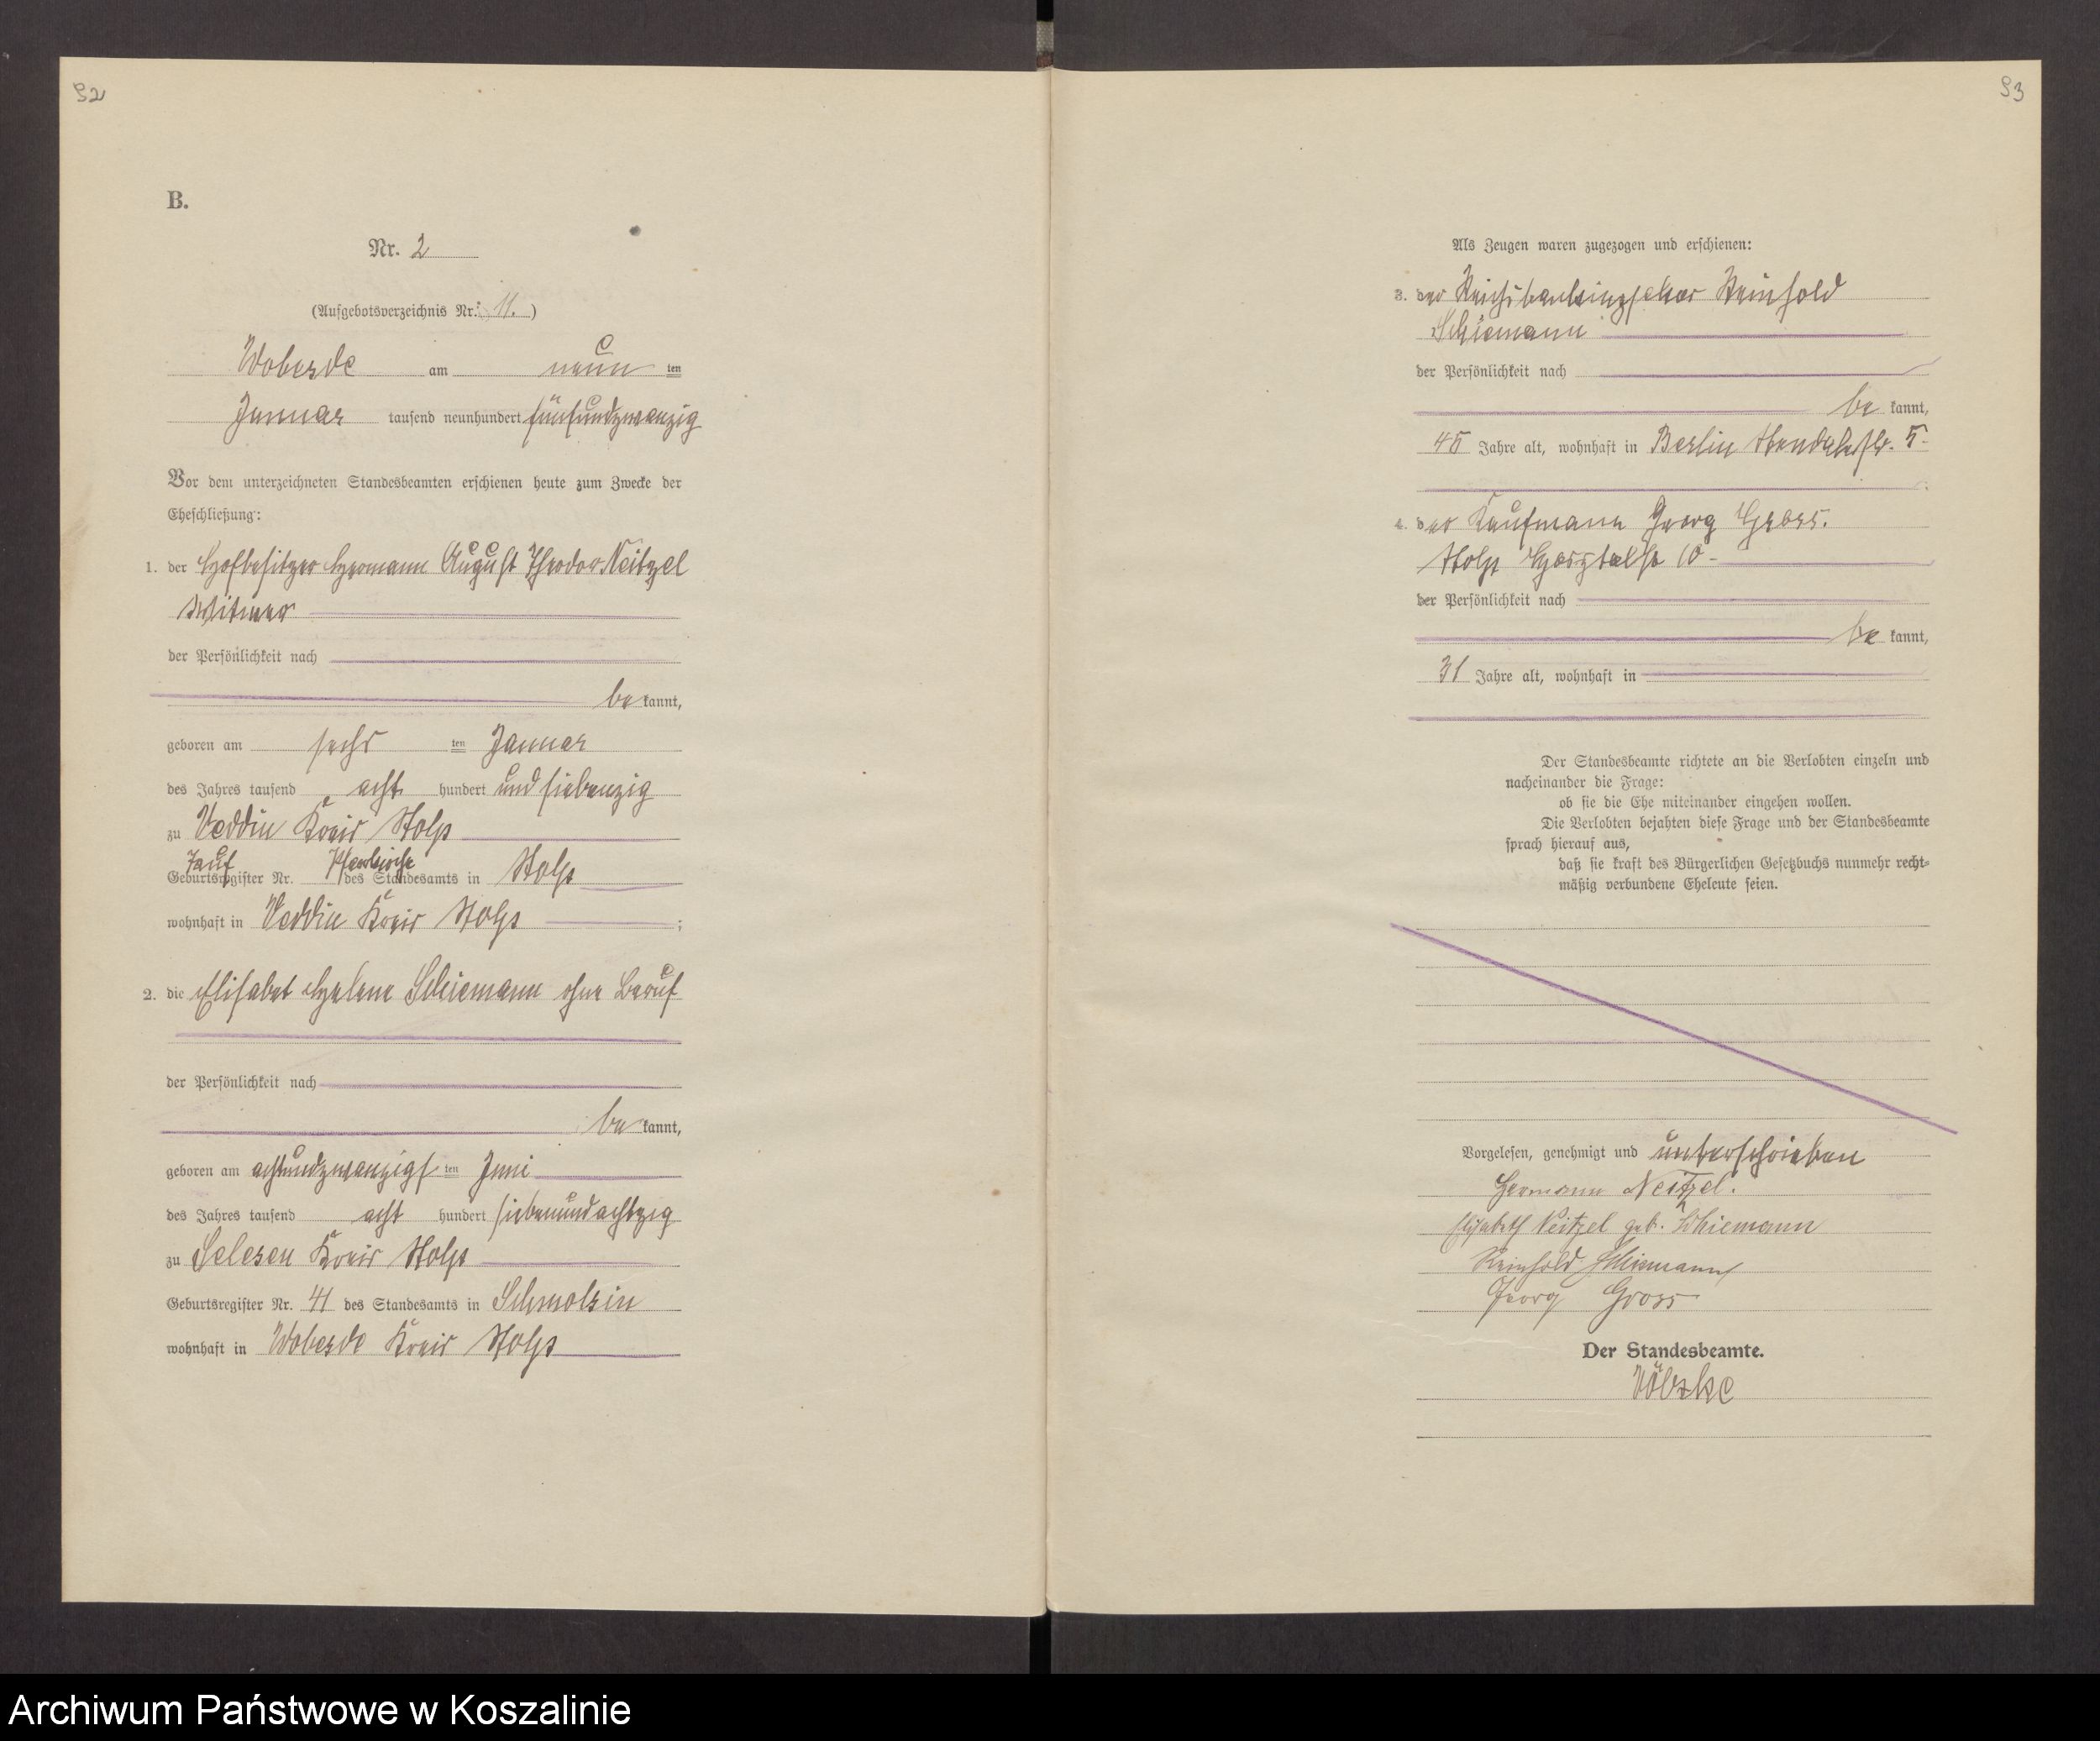 92
B.
Nr. 2
(Aufgebotsverzeichnis Nr. 11.)
Wobesde am neun ten
Januar tausend neunhundert fünfundzwanzig
Vor dem unterzeichneten Standesbeamten erschienen heute zum Zwecke der
Eheschließung:
1. der Hofbesitzer Hermann August Theodor Neitzel
Witwer
der Persönlichkeit nach
be kannt,
geboren am sechs ten Januar
des Jahres tausend acht hundert und siebenzig
zu Veddin Kreis Stolp
Tauf Pfarrkirche
Geburtsregister Nr. des Standesamts in Stolp
wohnhaft in Veddin Kreis Stolp ;
2. die Elisabet Helene Schiemann ohne Beruf
der Persönlichkeit nach
be kannt,
geboren am achtundzwanzigs ten Juni
des Jahres tausend acht hundert siebenundachtzig
zu Selesen Kreis Stolp
Geburtsregister Nr. 41 des Standesamts in Schmolsin
wohnhaft in Wobesde Kreis Stolp
93
Als Zeugen waren zugezogen und erschienen:
3. der Reichsbankinspektor Reinhold
Schiemann
der Persönlichkeit nach
be kannt,
45 Jahre alt, wohnhaft in Berlin 5
4. der Kaufmann Georg
Stolp 10
der Persönlichkeit nach
be kannt,
31 Jahre alt, wohnhaft in
Der Standesbeamte richtete an die Verlobten einzeln und
nacheinander die Frage:
ob sie die Ehe miteinander eingehen wollen.
Die Verlobten bejahten diese Frage und der Standesbeamte
sprach hierauf aus,
daß sie kraft des Bürgerlichen Gesetzbuchs nunmehr recht-
mäßig verbundene Eheleute seien.
Vorgelesen, genehmigt und unterschrieben
Hermann Neitzel.
Elisabeth Neitzel geb. Schiemann
Reinhold Schiemann
Georg Gross
Der Standesbeamte.
Völzke
Archiwum Państwowe w Koszalinie